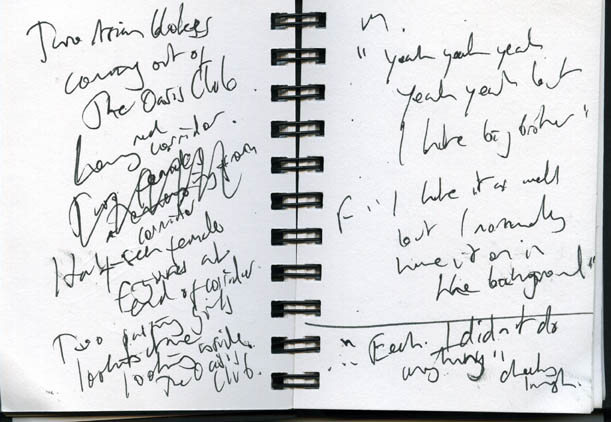 Two Asian blokes
coming out of
The Oasis Club.
Long red corridor.
Two females
corridor
Half-seen female
figures at
end of corridor.
Two passing girls
looking inside
The Oasis
Club.
M.
"Yeah yeah yeah
yeah yeah but
I hate big brother"
F "I hate it as well
but I normally
have it on in
the background"
M "Eeeh. I didn't do
anything"
cheeky
laugh.